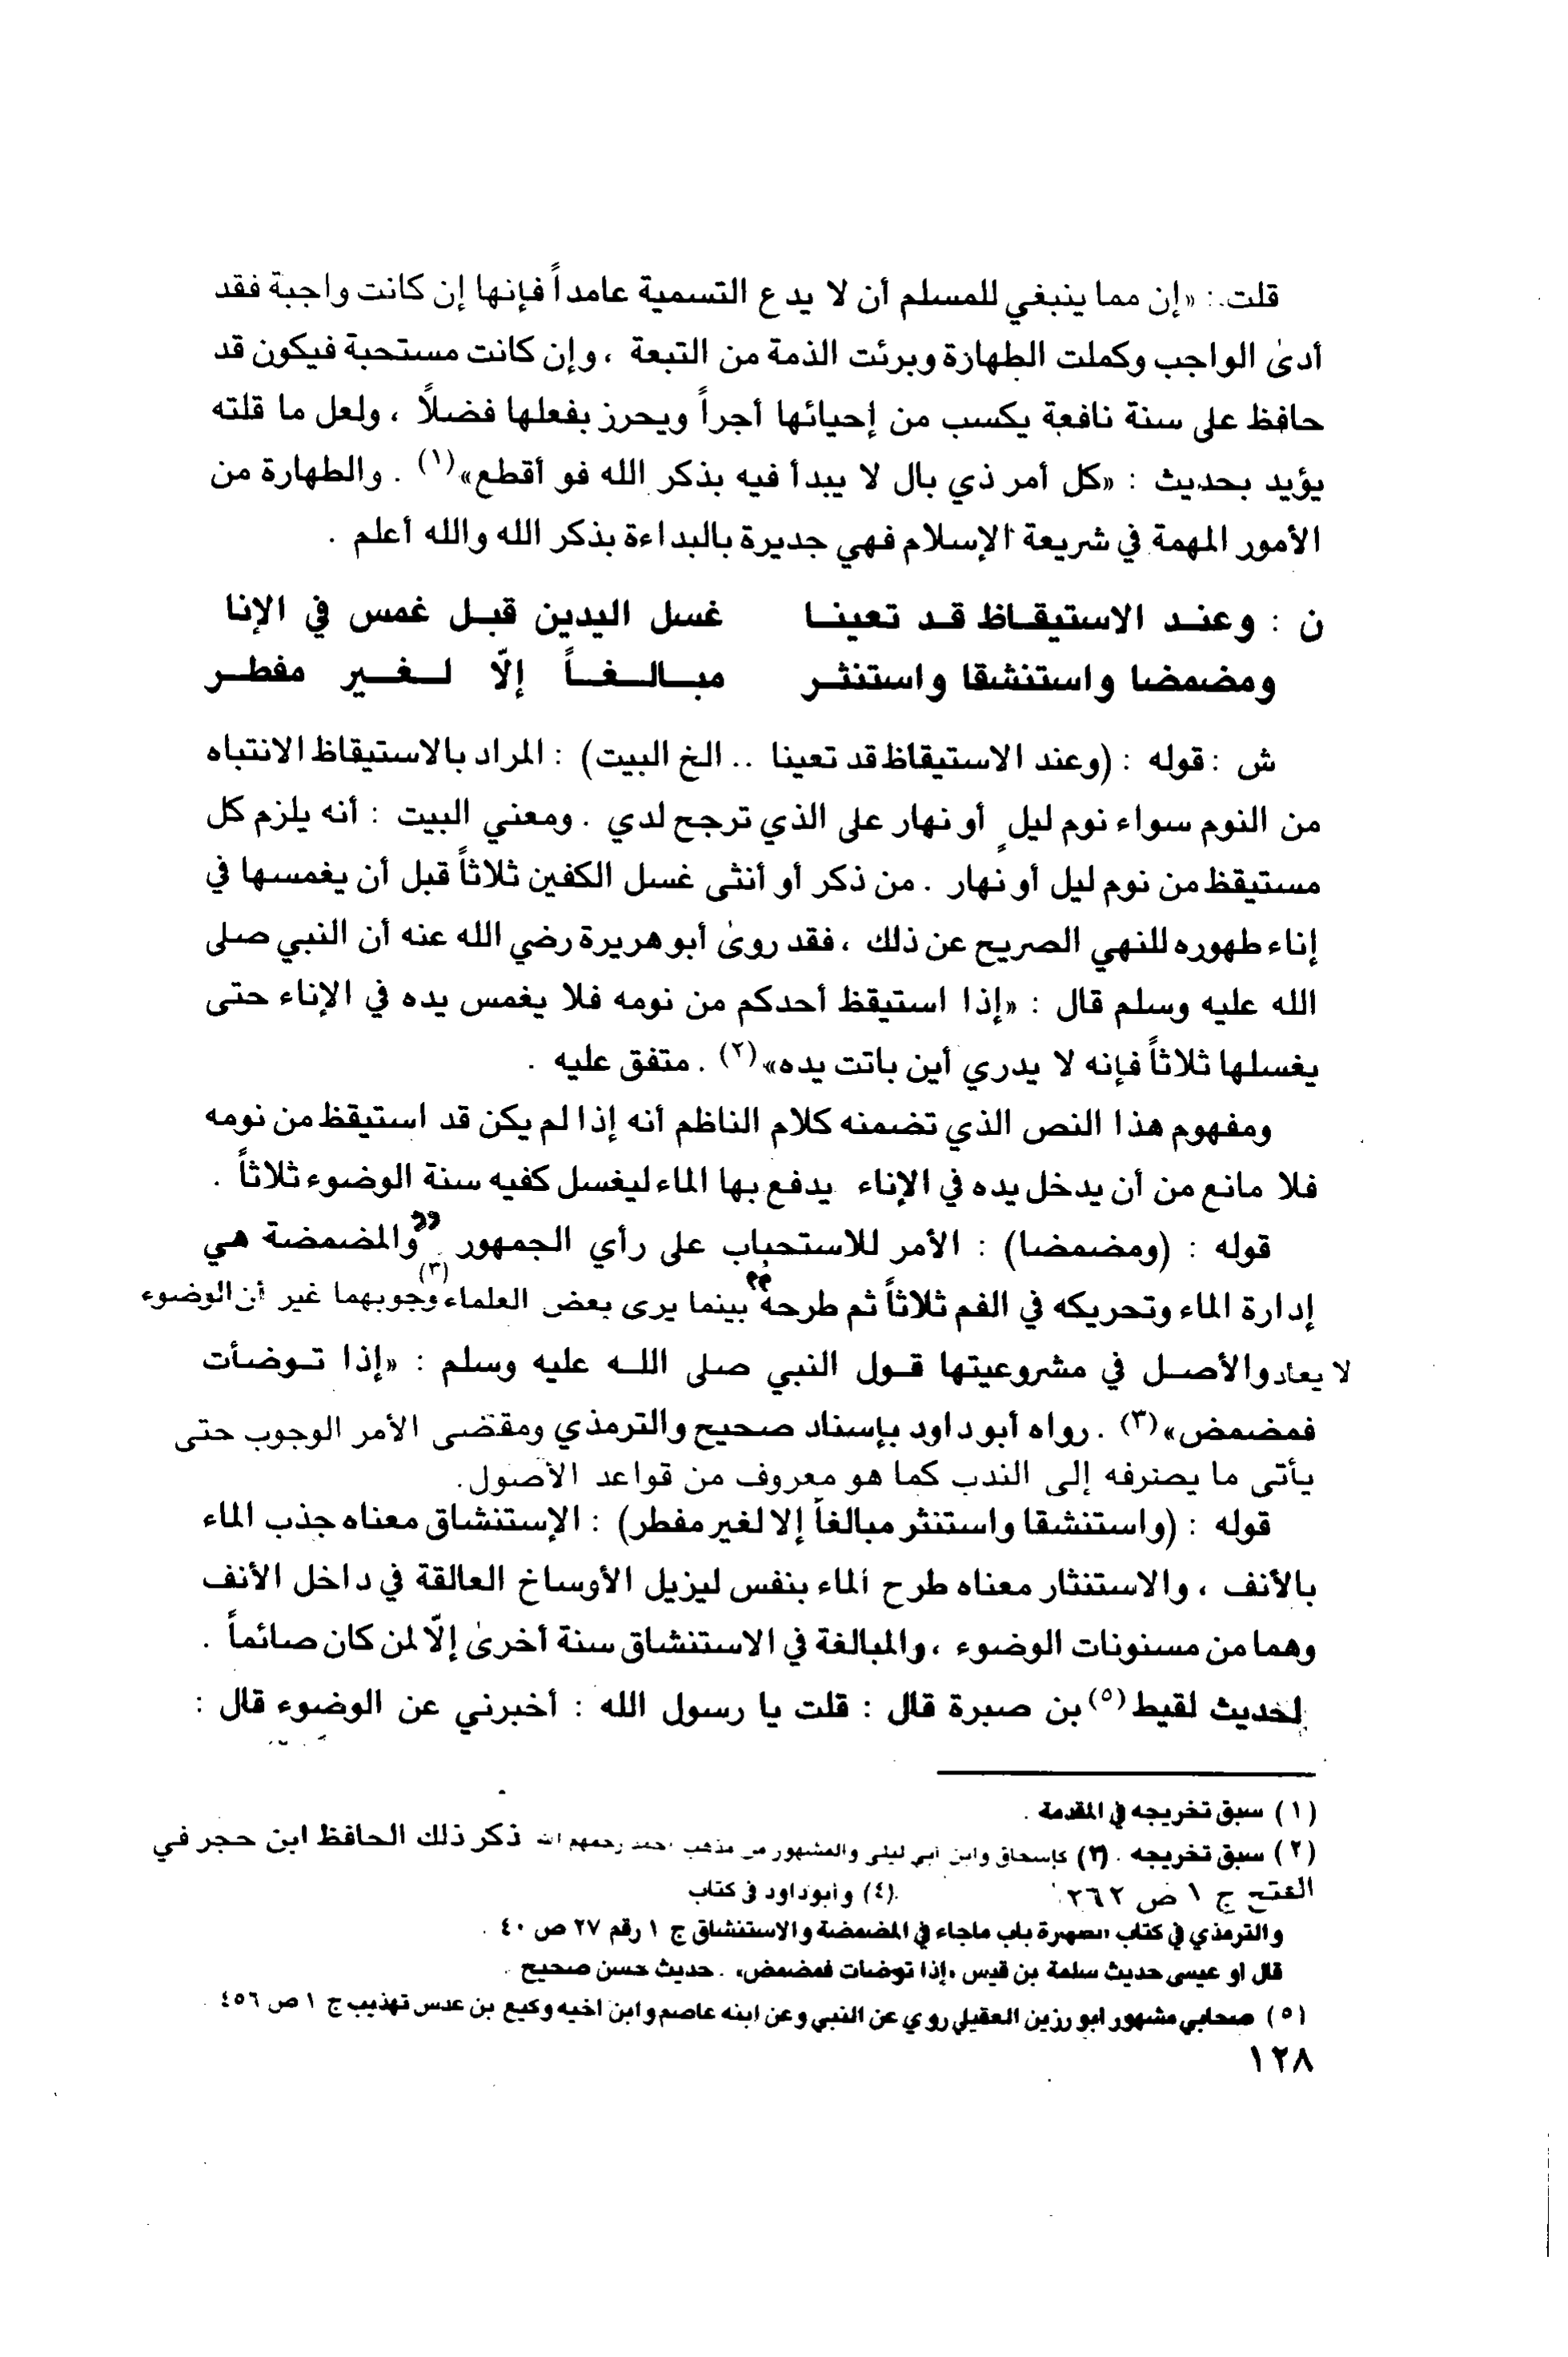 قلت : «إن مما ينبغي للمسلم أن لا يدع التسمية عامداً فإنها إن كانت واجبة فقد
أدىٰ الواجب وكملت الطهارة وبرئت الذمة من التبعة ، وإن كانت مستحبة فيكون قد
حافظ على سنة نافعة يكسب من إحيائها أجراً ويحرز بفعلها فضلاً ، ولعل ما قلته
يؤيد بحديث : «كل أمر ذي بال لا يبدأ فيه بذكر الله فو أقطع»(١) . والطهارة من
الأمور المهمة في شريعة الإسلام فهي جديرة بالبداءة بذكر الله والله أعلم .
ن : وعنـد الاستيقـاظ قـد تعينـا غسل اليدين قبـل غمس في الإنا
ومضمضا واستنشقا واستنثـر مبـالـغـاً إلّا لـغـير مفطـر
ش : قوله : (وعند الاستيقاظ قد تعينا .. الخ البيت) : المراد بالاستيقاظ الانتباه
من النوم سواء نوم ليلٍ أو نهار على الذي ترجح لدي . ومعني البيت : أنه يلزم كل
مستيقظ من نوم ليل أو نهار . من ذكر أو أنثى غسل الكفين ثلاثاً قبل أن يغمسها في
إناء طهوره للنهي الصريح عن ذلك ، فقد روىٰ أبو هريرة رضي الله عنه أن النبي صلى
الله عليه وسلم قال : «إذا استيقظ أحدكم من نومه فلا يغمس يده في الإناء حتى
يغسلها ثلاثاً فإنه لا يدري أين باتت يده»(٢) . متفق عليه .
ومفهوم هذا النص الذي تضمنه كلام الناظم أنه إذا لم يكن قد استيقظ من نومه
فلا مانع من أن يدخل يده في الإناء يدفع بها الماء ليغسل كفيه سنة الوضوء ثلاثاً .
قوله : (ومضمضا) : الأمر للاستحباب على رأي الجمهور "والمضمضة هي
إدارة الماء وتحريكه في الفم ثلاثاً ثم طرحه" بينما يرى بعض العلماء(٣) وجوبهما غير أن الوضوء
لا يعاد والأصـل في مشروعيتها قـول النبي صلى اللـه عليه وسلم : «إذا تـوضأت
فمضمض»(٣) . رواه أبو داود بإسناد صحيح والترمذي ومقتضى الأمر الوجوب حتى
يأتي ما يصرفه إلى الندب كما هو معروف من قواعد الأصول.
قوله : (واستنشقا واستنثر مبالغاً إلا لغير مفطر) : الإستنشاق معناه جذب الماء
بالأنف ، والاستنثار معناه طرح الماء بنفس ليزيل الأوساخ العالقة في داخل الأنف
وهما من مسنونات الوضوء ، والمبالغة في الاستنشاق سنة أخرىٰ إلّا لمن كان صائماً .
لحديث لقيط(٥) بن صبرة قال : قلت يا رسول الله : أخبرني عن الوضوء قال :
(١) سبق تخريجه في المقدمة .
(٢) سبق تخريجه . (٣) كإسحاق وابن أبي ليلى والمشهور من مذهب احمد رحمهم الله ذكر ذلك الحافظ ابن حجر في
الفتح ج ١ ص ٢٦٢ . (٤) وأبو داود في كتاب
والترمذي في كتاب الطهارة باب ماجاء في المضمضة والاستنشاق ج ١ رقم ٢٧ ص ٤٠ .
قال او عيسى حديث سلمة بن قيس «إذا توضات فمضمض» . حديث حسن صحيح .
(٥) صحابي مشهور ابو رزين العقيلي روي عن النبي وعن ابنه عاصم وابن اخيه وكيع بن عدس تهذيب ج ١ ص ٤٥٦ .
١٢٨